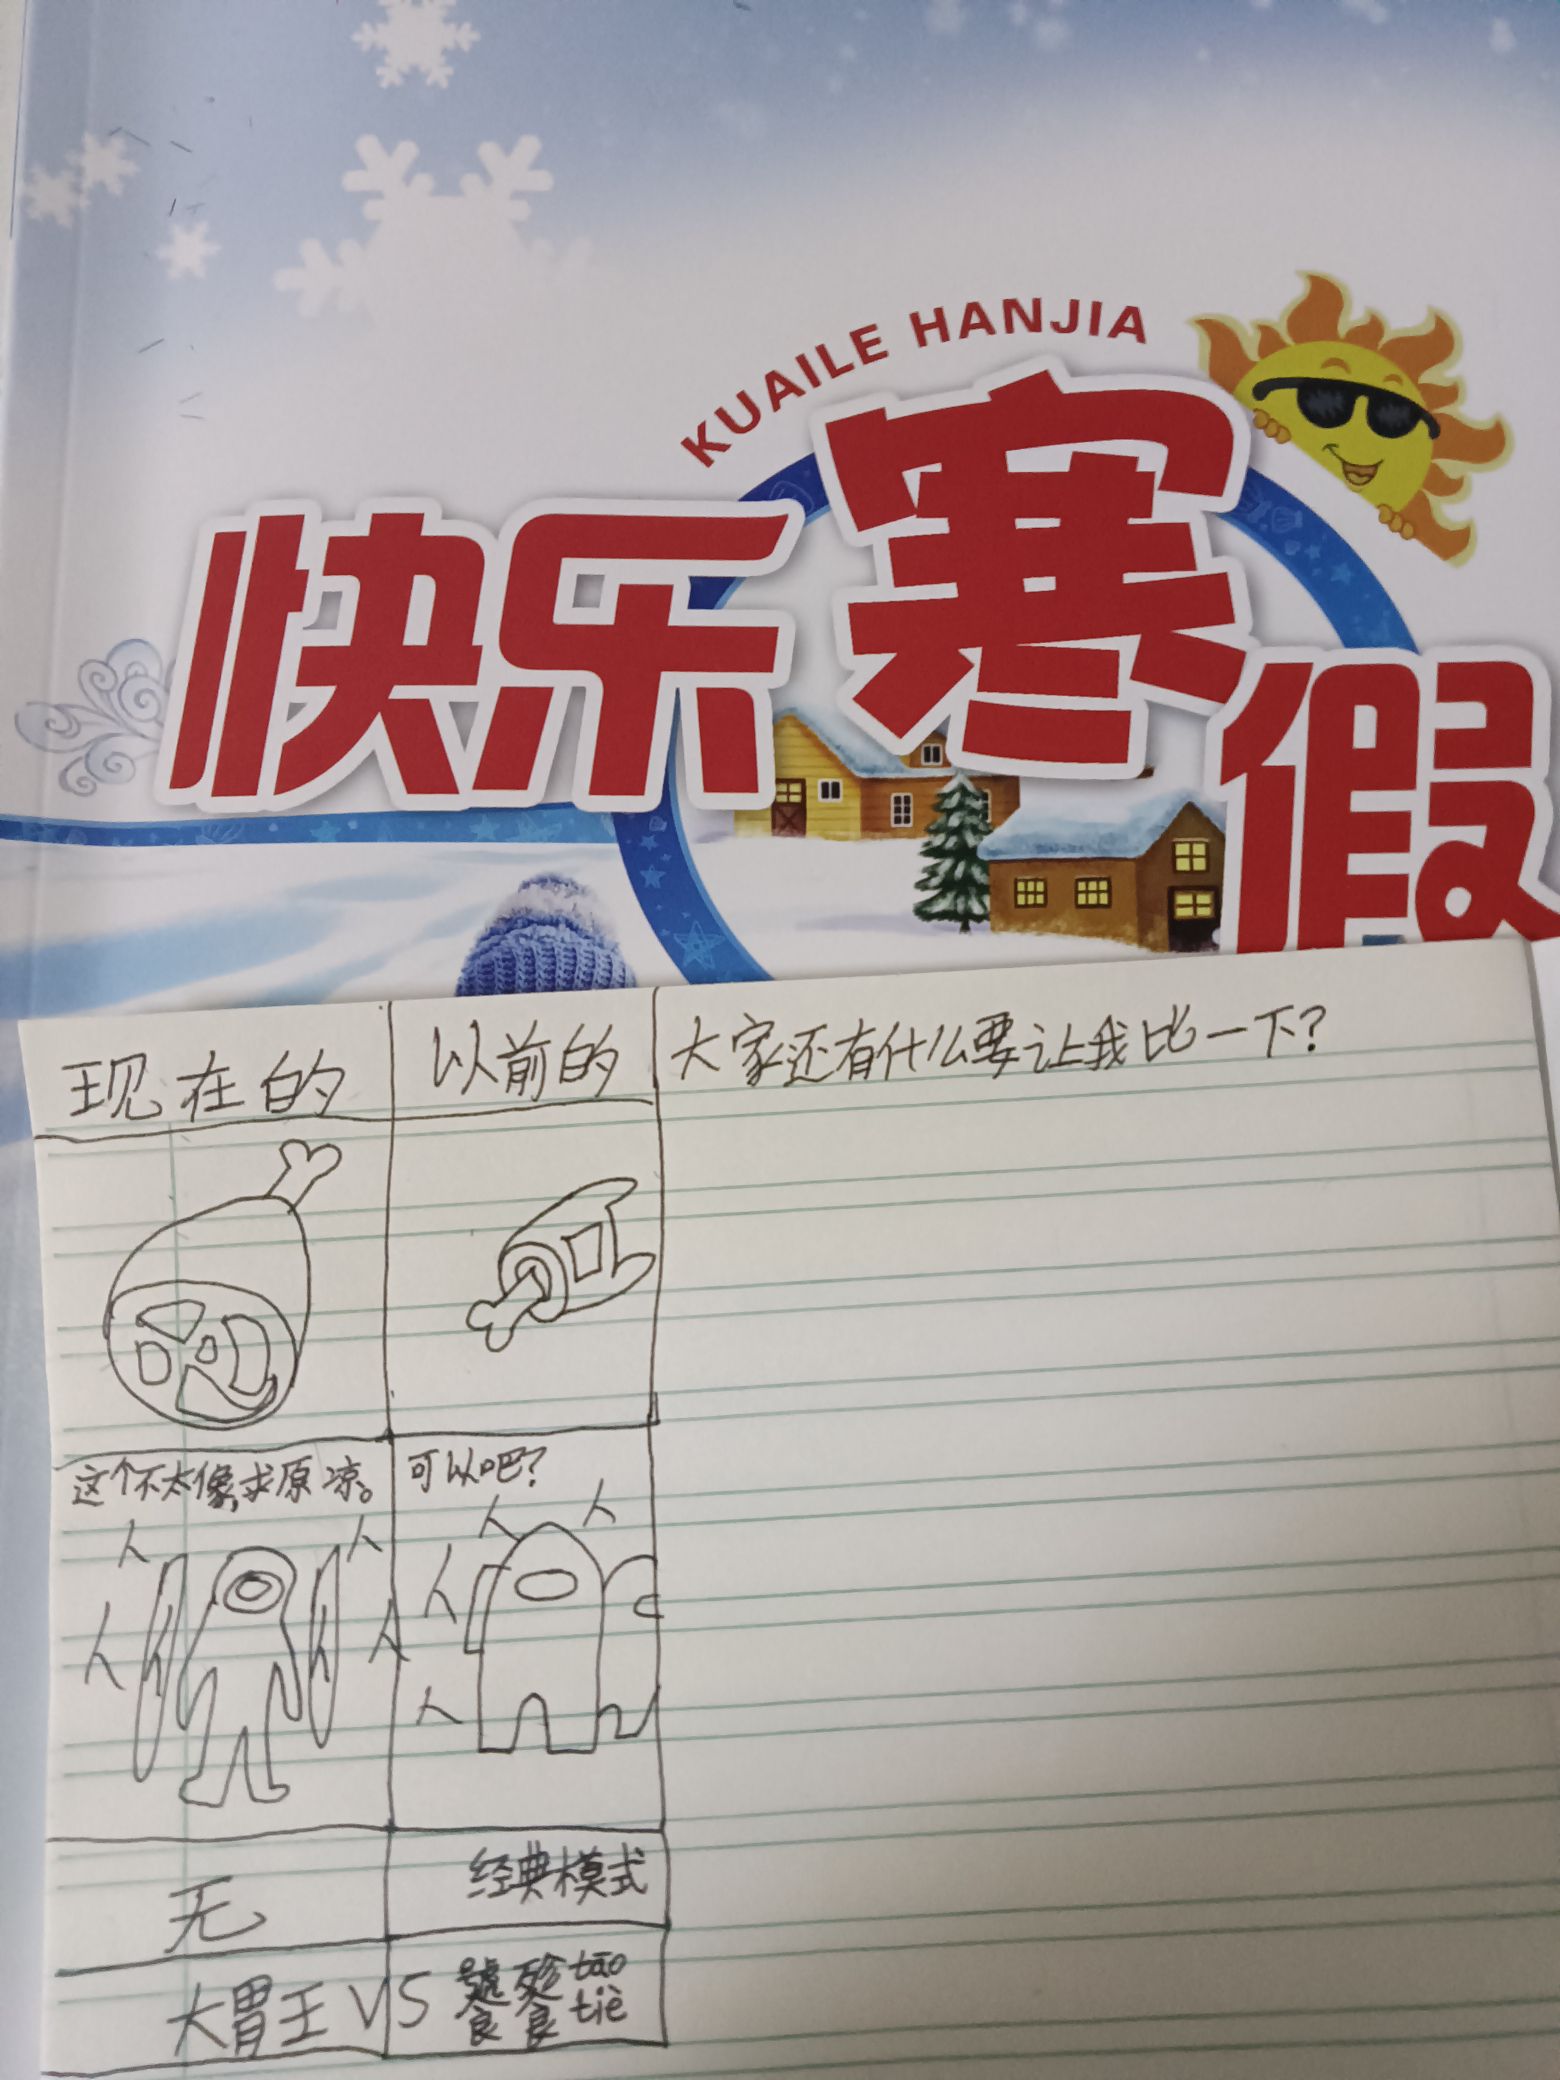 KUAILE HANJIA
快乐寒假
现在的
以前的
大家还有什么要让我比一下?
这个不太像,求原凉。
可以吧?
无
经典模式
大胃王VS饕餮tāo tiè